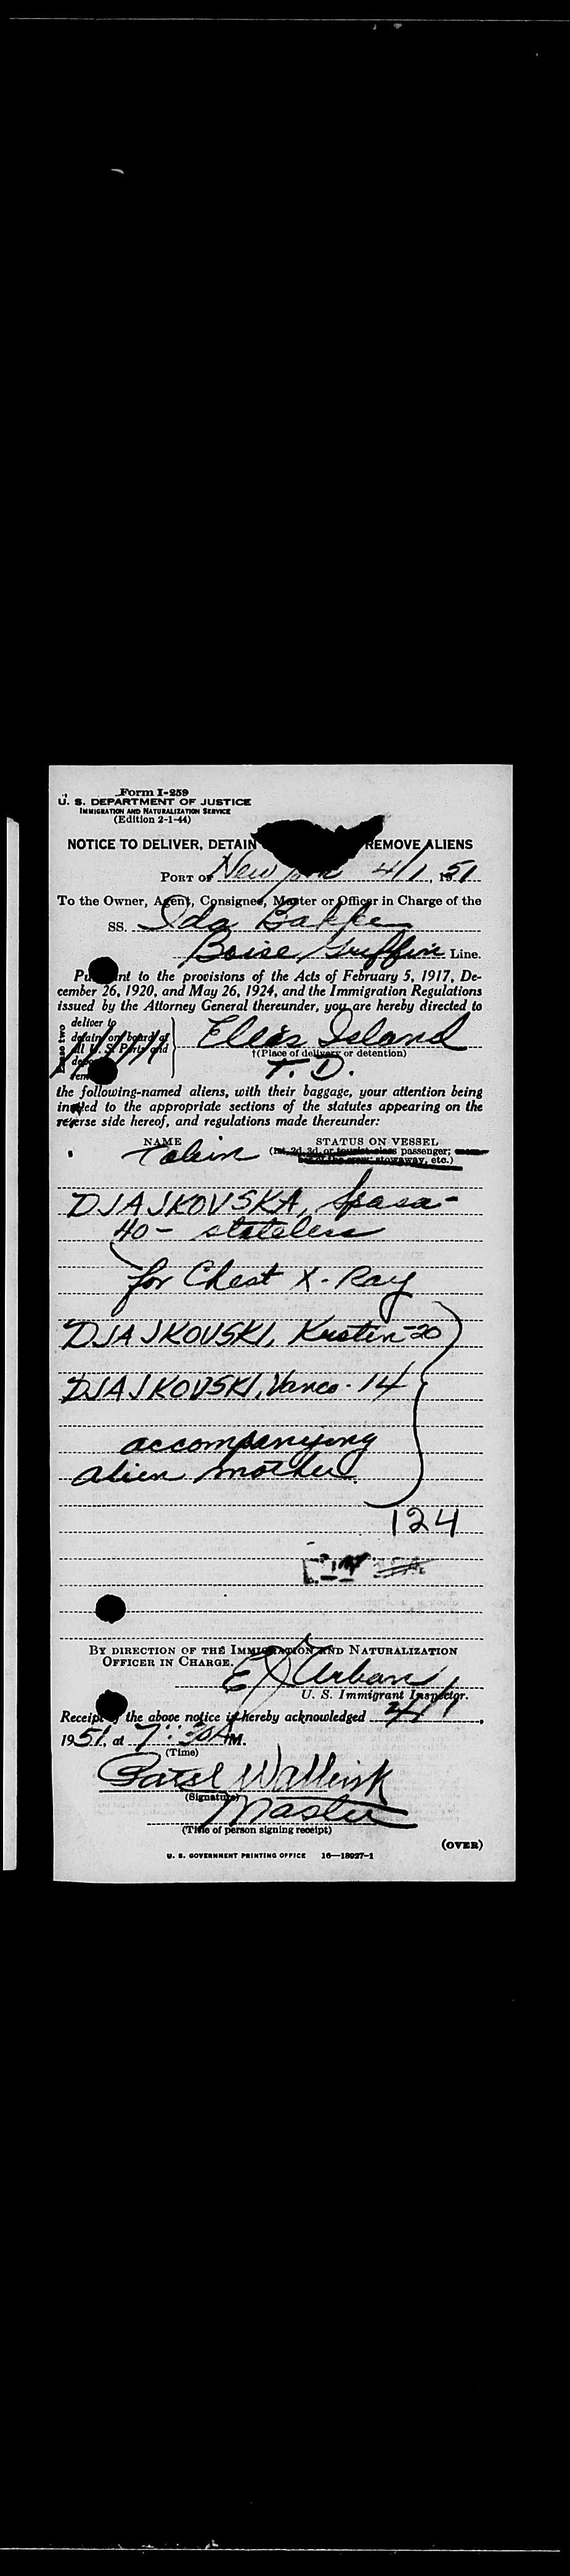 Form I-259
U. S. DEPARTMENT OF JUSTICE
IMMIGRATION AND NATURALIZATION SERVICE
(Edition 2-1-44)
NOTICE TO DELIVER, DETAIN REMOVE ALIENS
PORT OF New York 4/1, 1951
To the Owner, Agent, Consignee, Master or Officer in Charge of the
SS. Ida Bakke
Boise Griffin Line.
Pu nt to the provisions of the Acts of February 5, 1917, De-
cember 26, 1920, and May 26, 1924, and the Immigration Regulations
issued by the Attorney General thereunder, you are hereby directed to
deliver to
detain on board at
all U. S. Ports and
Ellis Island
†(Place of delivery or detention)
T. D.
the following-named aliens, with their baggage, your attention being
invited to the appropriate sections of the statutes appearing on the
reverse side hereof, and regulations made thereunder:
NAME STATUS ON VESSEL
Cabin (1st, 2d, 3d, or tourist class passenger; mem-
ber of the crew; stowaway, etc.)
DJAJKOVSKA, Spasa-
40 - stateless
for Chest X-Ray
DJAJKOVSKI, Krsten-20
DJAJKOVSKI, Vanco - 14
accompanying
alien mother.
124
BY DIRECTION OF THE IMMIGRATION AND NATURALIZATION
OFFICER IN CHARGE.
E J Urban
U. S. Immigrant Inspector.
Receipt of the above notice is hereby acknowledged 4/1,
1951, at 7:30 AM.
(Time)
(Signature)
Master
(Title of person signing receipt)
(OVER)
U. S. GOVERNMENT PRINTING OFFICE 16—18027-1